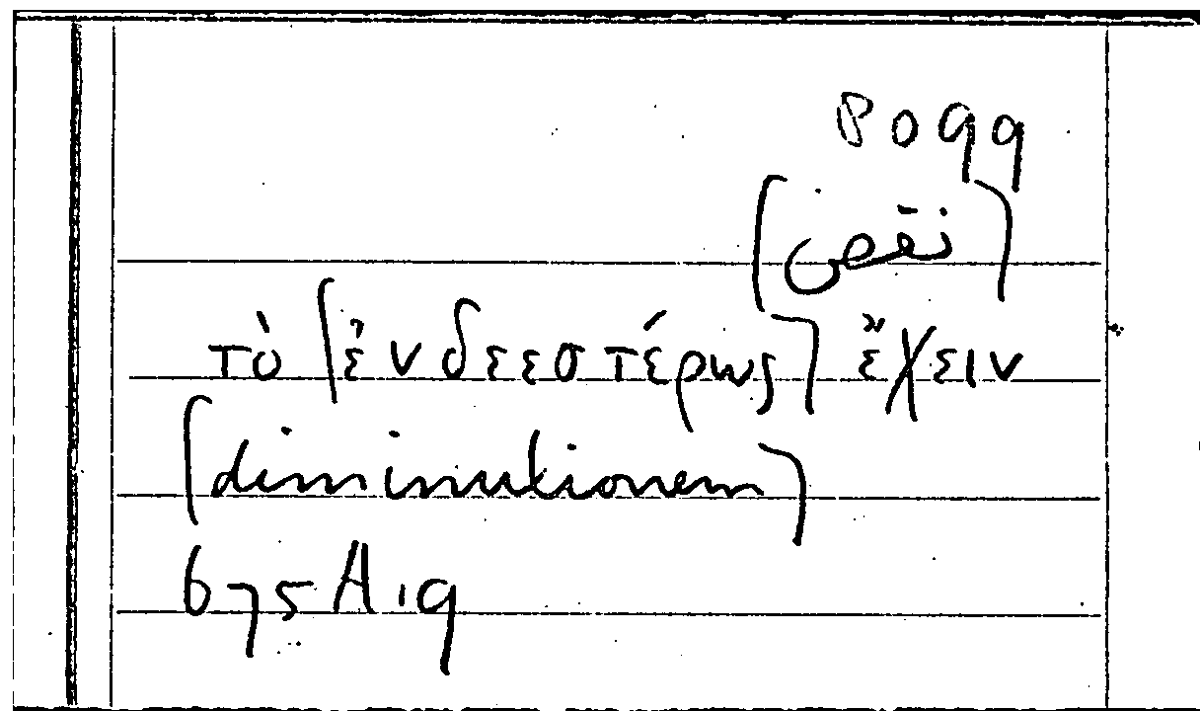 8099
[نقص]
τὸ [ἐνδεεστέρως] ἔχειν
[diminutionem]
675A19